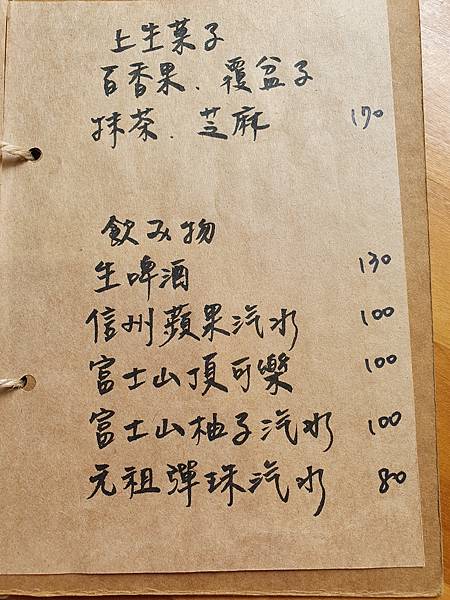 上生菓子
百香果、覆盆子
抹茶、芝麻 170
飲み物
生啤酒 130
信州蘋果汽水 100
富士山頂可樂 100
富士山柚子汽水 100
元祖彈珠汽水 80